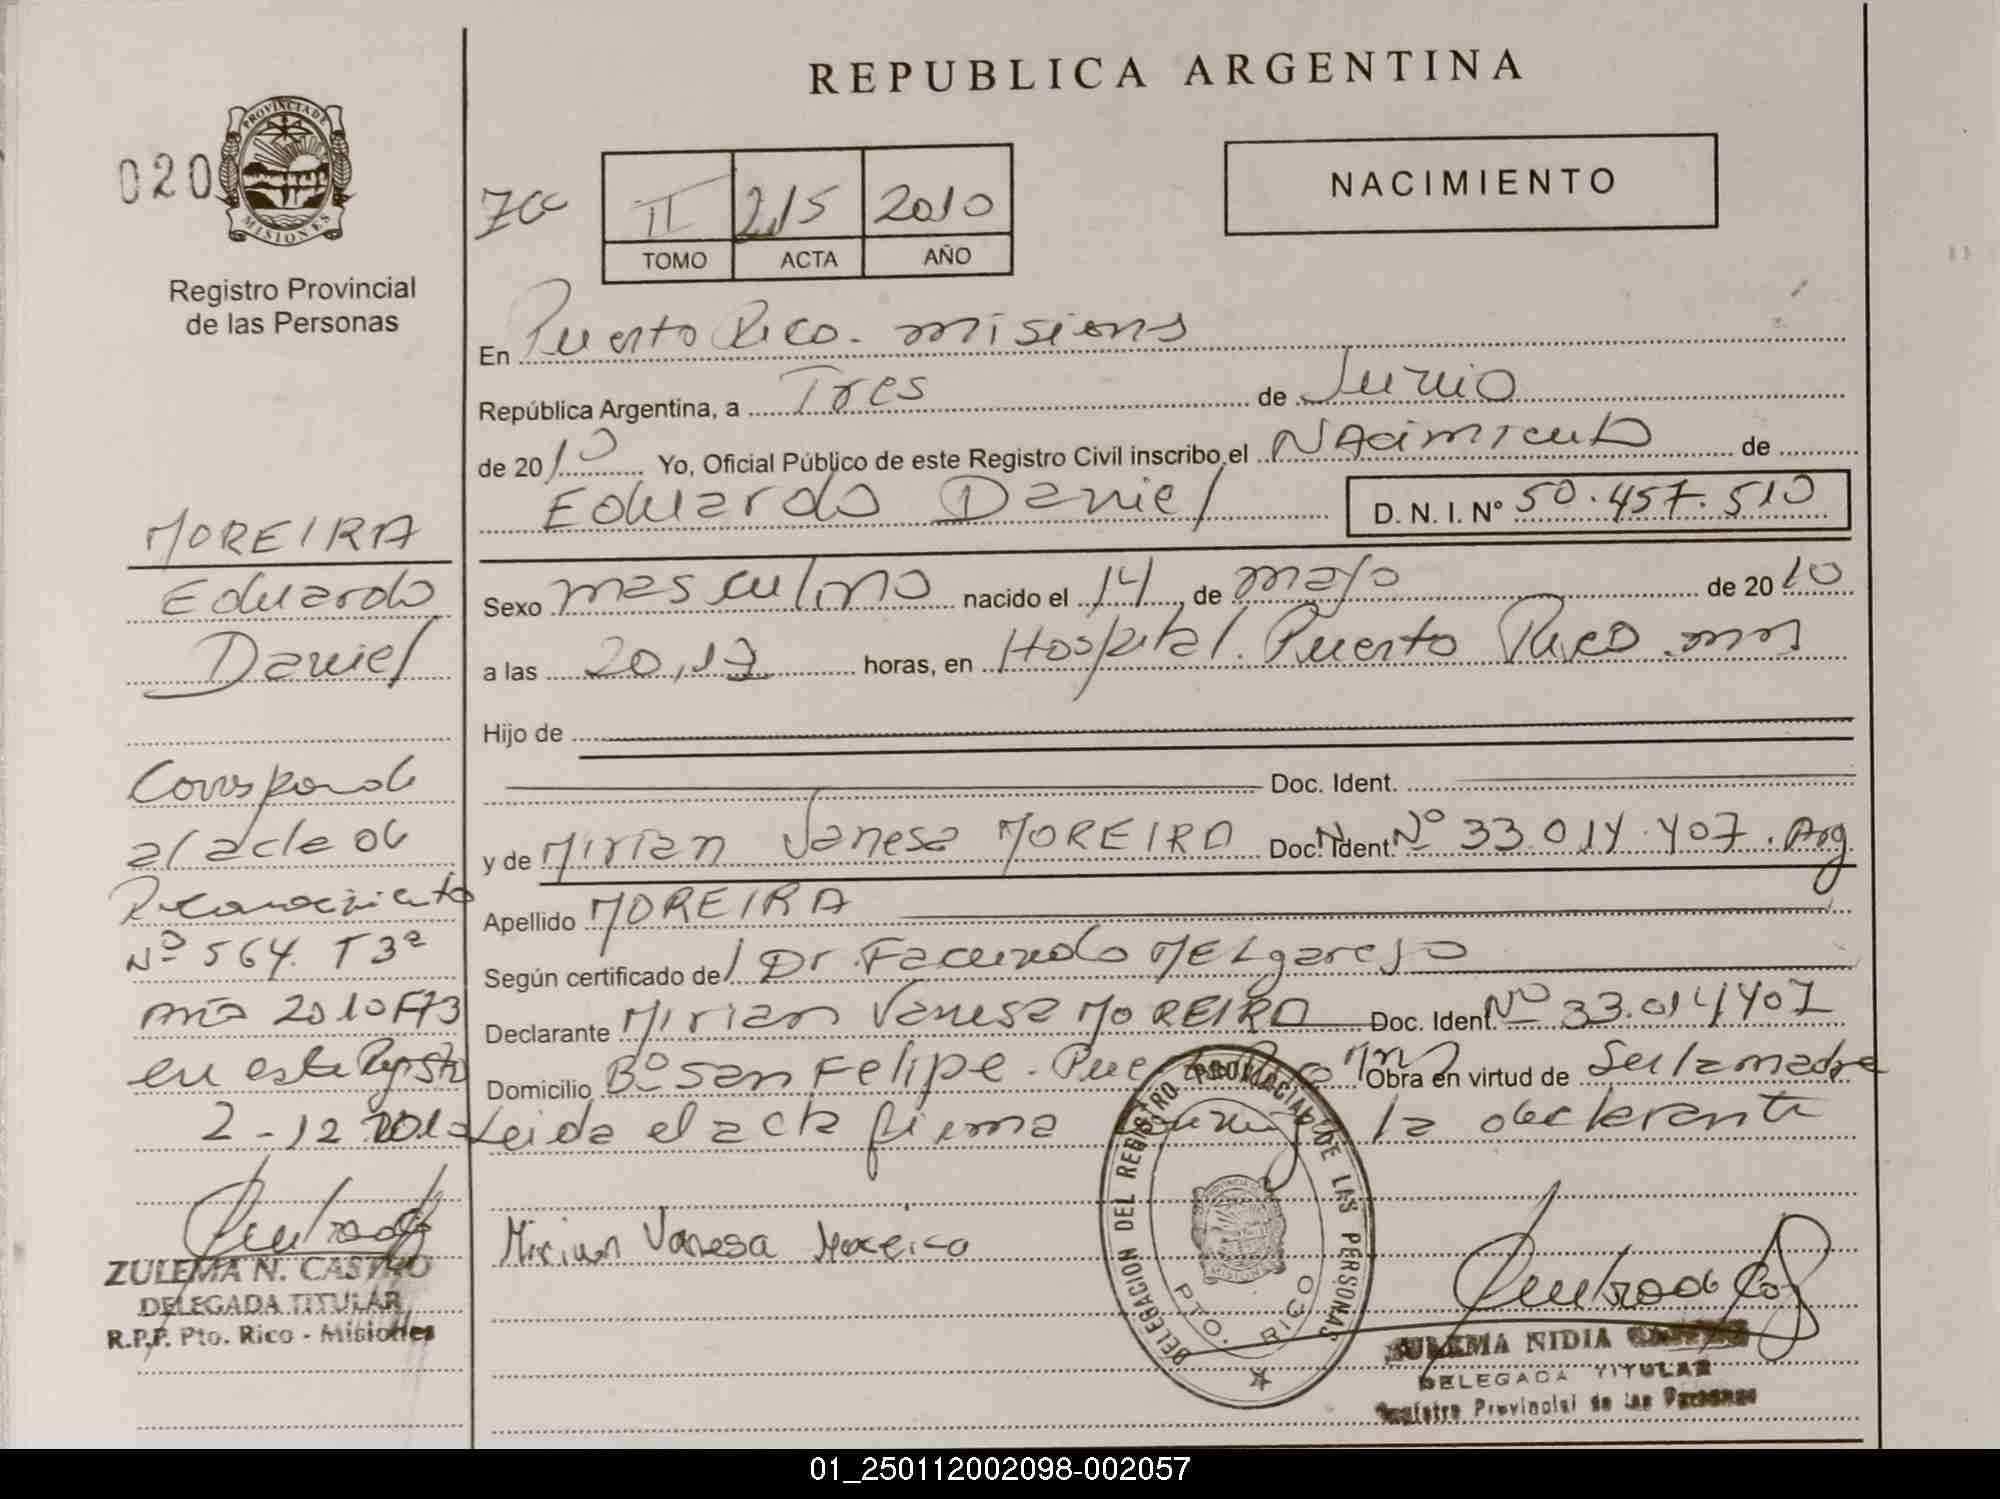 REPUBLICA ARGENTINA
020
PROVINCIA DE
MISIONES
Registro Provincial
de las Personas
II 215 2010
TOMO ACTA AÑO
NACIMIENTO
En Puerto Rico - misiones
República Argentina, a Tres de Junio
de 2010 Yo, Oficial Público de este Registro Civil inscribo el NAcimiento de
Eduardo Daniel D. N. I. Nº 50.457.510
Sexo masculino nacido el 14 de mayo de 2010
a las 20,17 horas, en Hospital. Puerto Rico. mns
Hijo de
Doc. Ident.
y de Mirian Vanesa MOREIRA Doc. Ident. Nº 33.014.407. Arg
Apellido MOREIRA
Según certificado del Dr. Facundo MELgarejo
Declarante Mirian Vanesa MOREIRA Doc. Ident. Nº 33.014407
Domicilio Bº San Felipe. Obra en virtud de Ser la madre
Leida el acta firma la declarante
Mirian Vanesa Moreira
MOREIRA
Eduardo
Daniel
Corresponde
al acta de
Reconocimiento
Nº 564. T 3º
Año 2010 F73
en este Registro
2-12-2010
ZULEMA N. CASTRO
DELEGADA TITULAR
R.P.P. Pto. Rico - Misiones
DELEGACION DEL REGISTRO PROVINCIAL DE LAS PERSONAS
PTO. RICO
MISIONES
ZULEMA NIDIA
DELEGADA TITULAR
Registro Provincial de las Personas
01_250112002098-002057